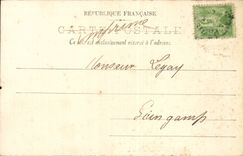 RÉPUBLIQUE FRANÇAISE
Imprimé
CARTE POSTALE
Ce côté est exclusivement réservé à l'adresse.
Monsieur Legay
Guingamp